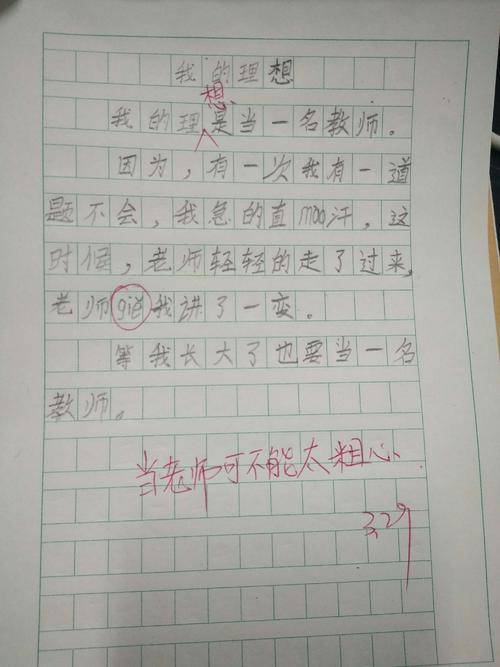 我的理想
想
我的理是当一名教师。
因为，有一次我有一道
题不会，我急的直mao汗，这
时候，老师轻轻的走了过来，
老师gié我讲了一变。
等我长大了也要当一名
教师。
当老师可不能太粗心。
3.29